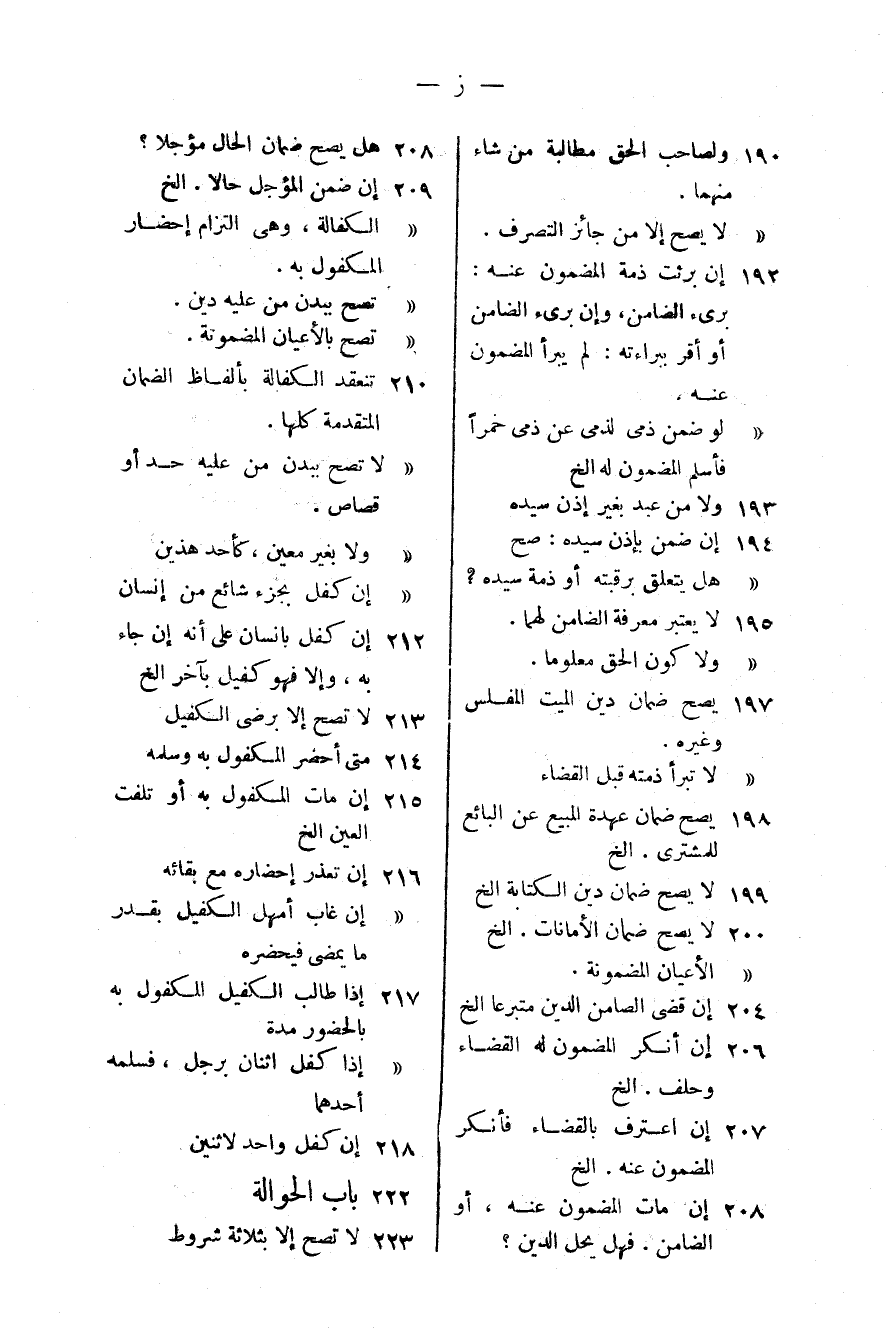 — ز —
١٩٠ ولصاحب الحق مطالبة من شاء
منهما .
« لا يصح إلا من جائز التصرف .
١٩٢ إن برئت ذمة المضمون عنه :
برىء الضامن، وإن برىء الضامن
أو أقر ببراءته : لم يبرأ المضمون
عنه .
« لو ضمن ذمى لذمى عن ذمى خمراً
فأسلم المضمون له الخ
١٩٣ ولا من عبد بغير إذن سيده
١٩٤ إن ضمن بإذن سيده : صح
« هل يتعلق برقبته أو ذمة سيده ؟
١٩٥ لا يعتبر معرفة الضامن لهما .
« ولا كون الحق معلوما .
١٩٧ يصح ضمان دين الميت المفلس
وغيره .
« لا تبرأ ذمته قبل القضاء
١٩٨ يصح ضمان عهدة المبيع عن البائع
للمشترى . الخ
١٩٩ لا يصح ضمان دين الكتابة الخ
٢٠٠ لا يصح ضمان الأمانات . الخ
« الأعيان المضمونة .
٢٠٤ إن قضى الصامن الدين متبرعا الخ
٢٠٦ إن أنكر المضمون له القضاء
وحلف . الخ
٢٠٧ إن اعترف بالقضاء فأنكر
المضمون عنه . الخ
٢٠٨ إن مات المضمون عنه ، أو
الضامن . فهل يحل الدين ؟
٢٠٨ هل يصح ضمان الحال مؤجلا ؟
٢٠٩ إن ضمن المؤجل حالا . الخ
« الكفالة ، وهى التزام إحضار
المكفول به .
« تصح ببدن من عليه دين .
« تصح بالأعيان المضمونة .
٢١٠ تنعقد الكفالة بألفاظ الضمان
المتقدمة كلها .
« لا تصح ببدن من عليه حد أو
قصاص .
« ولا بغير معين ، كأحد هذين
« إن كفل بجزء شائع من إنسان
٢١٢ إن كفل بانسان على أنه إن جاء
به ، وإلا فهو كفيل بآخر الخ
٢١٣ لا تصح إلا برضى الكفيل
٢١٤ متى أحضر المكفول به وسلمه
٢١٥ إن مات المكفول به أو تلفت
العين الخ
٢١٦ إن تعذر إحضاره مع بقائه
« إن غاب أمهل الكفيل بقدر
ما يمضى فيحضره
٢١٧ إذا طالب الكفيل المكفول به
بالحضور مدة
« إذا كفل اثنان برجل ، فسلمه
أحدهما
٢١٨ إن كفل واحد لاثنين
٢٢٢ باب الحوالة
٢٢٣ لا تصح إلا بثلاثة شروط